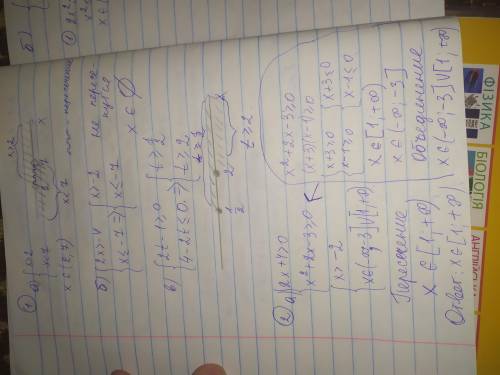 б)
① а) { x>2
x<7
x ∈ (2; 7)
б) { 2x>-4 { x>-2 не пересе-
{ x≤-7 ⇒ { x≤-7 кутся
x ∈ ∅
в) { 2t-1≥0 { t≥1/2
{ 4-2t≤0 ⇒ { t≥2
1/2 2 x
t≥2
② а) { 2x+4>0
{ x²+2x-3≥0
{ x>-2
{ x∈(-∞;-3]U[1;+∞)
Пересечение
x ∈ [1; +∞)
Ответ: x∈[1; +∞)
x²+2x-3≥0
(x+3)(x-1)≥0
{ x+3≥0 { x+3≤0
{ x-1≥0 { x-1≤0
x∈[1; +∞)
x∈(-∞; -3]
Объединение
x∈(-∞; -3]U[1; +∞)
ФІЗИКА
БІОЛОГІЯ